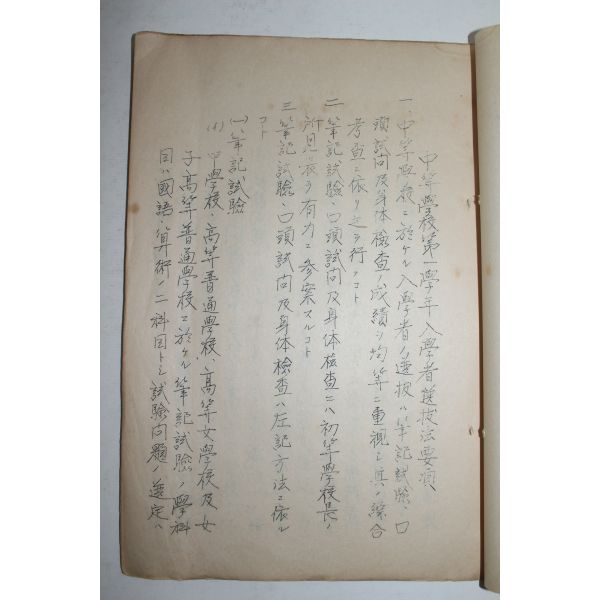 中等學校第一學年入學者選拔法要項
一、中等學校ニ於ケル入學者ノ選拔ハ筆記試驗、口
頭試問及身体檢查ノ成績ヲ均等ニ重視シ其ノ綜合
考查ニ依リ之ヲ行フコト
二 筆記試驗、口頭試問及身体檢查ニハ初等學校長ノ
所見表ヲ有力ニ參案スルコト
三 筆記試驗、口頭試問及身体檢查ハ左記方法ニ依ル
コト
(一)筆記試驗
(イ) 中學校、高等普通學校、高等女學校及女
子高等普通學校ニ於ケル筆記試驗ノ學科
目ハ國語、算術ノ二科目トシ試驗問題ノ選定ハ